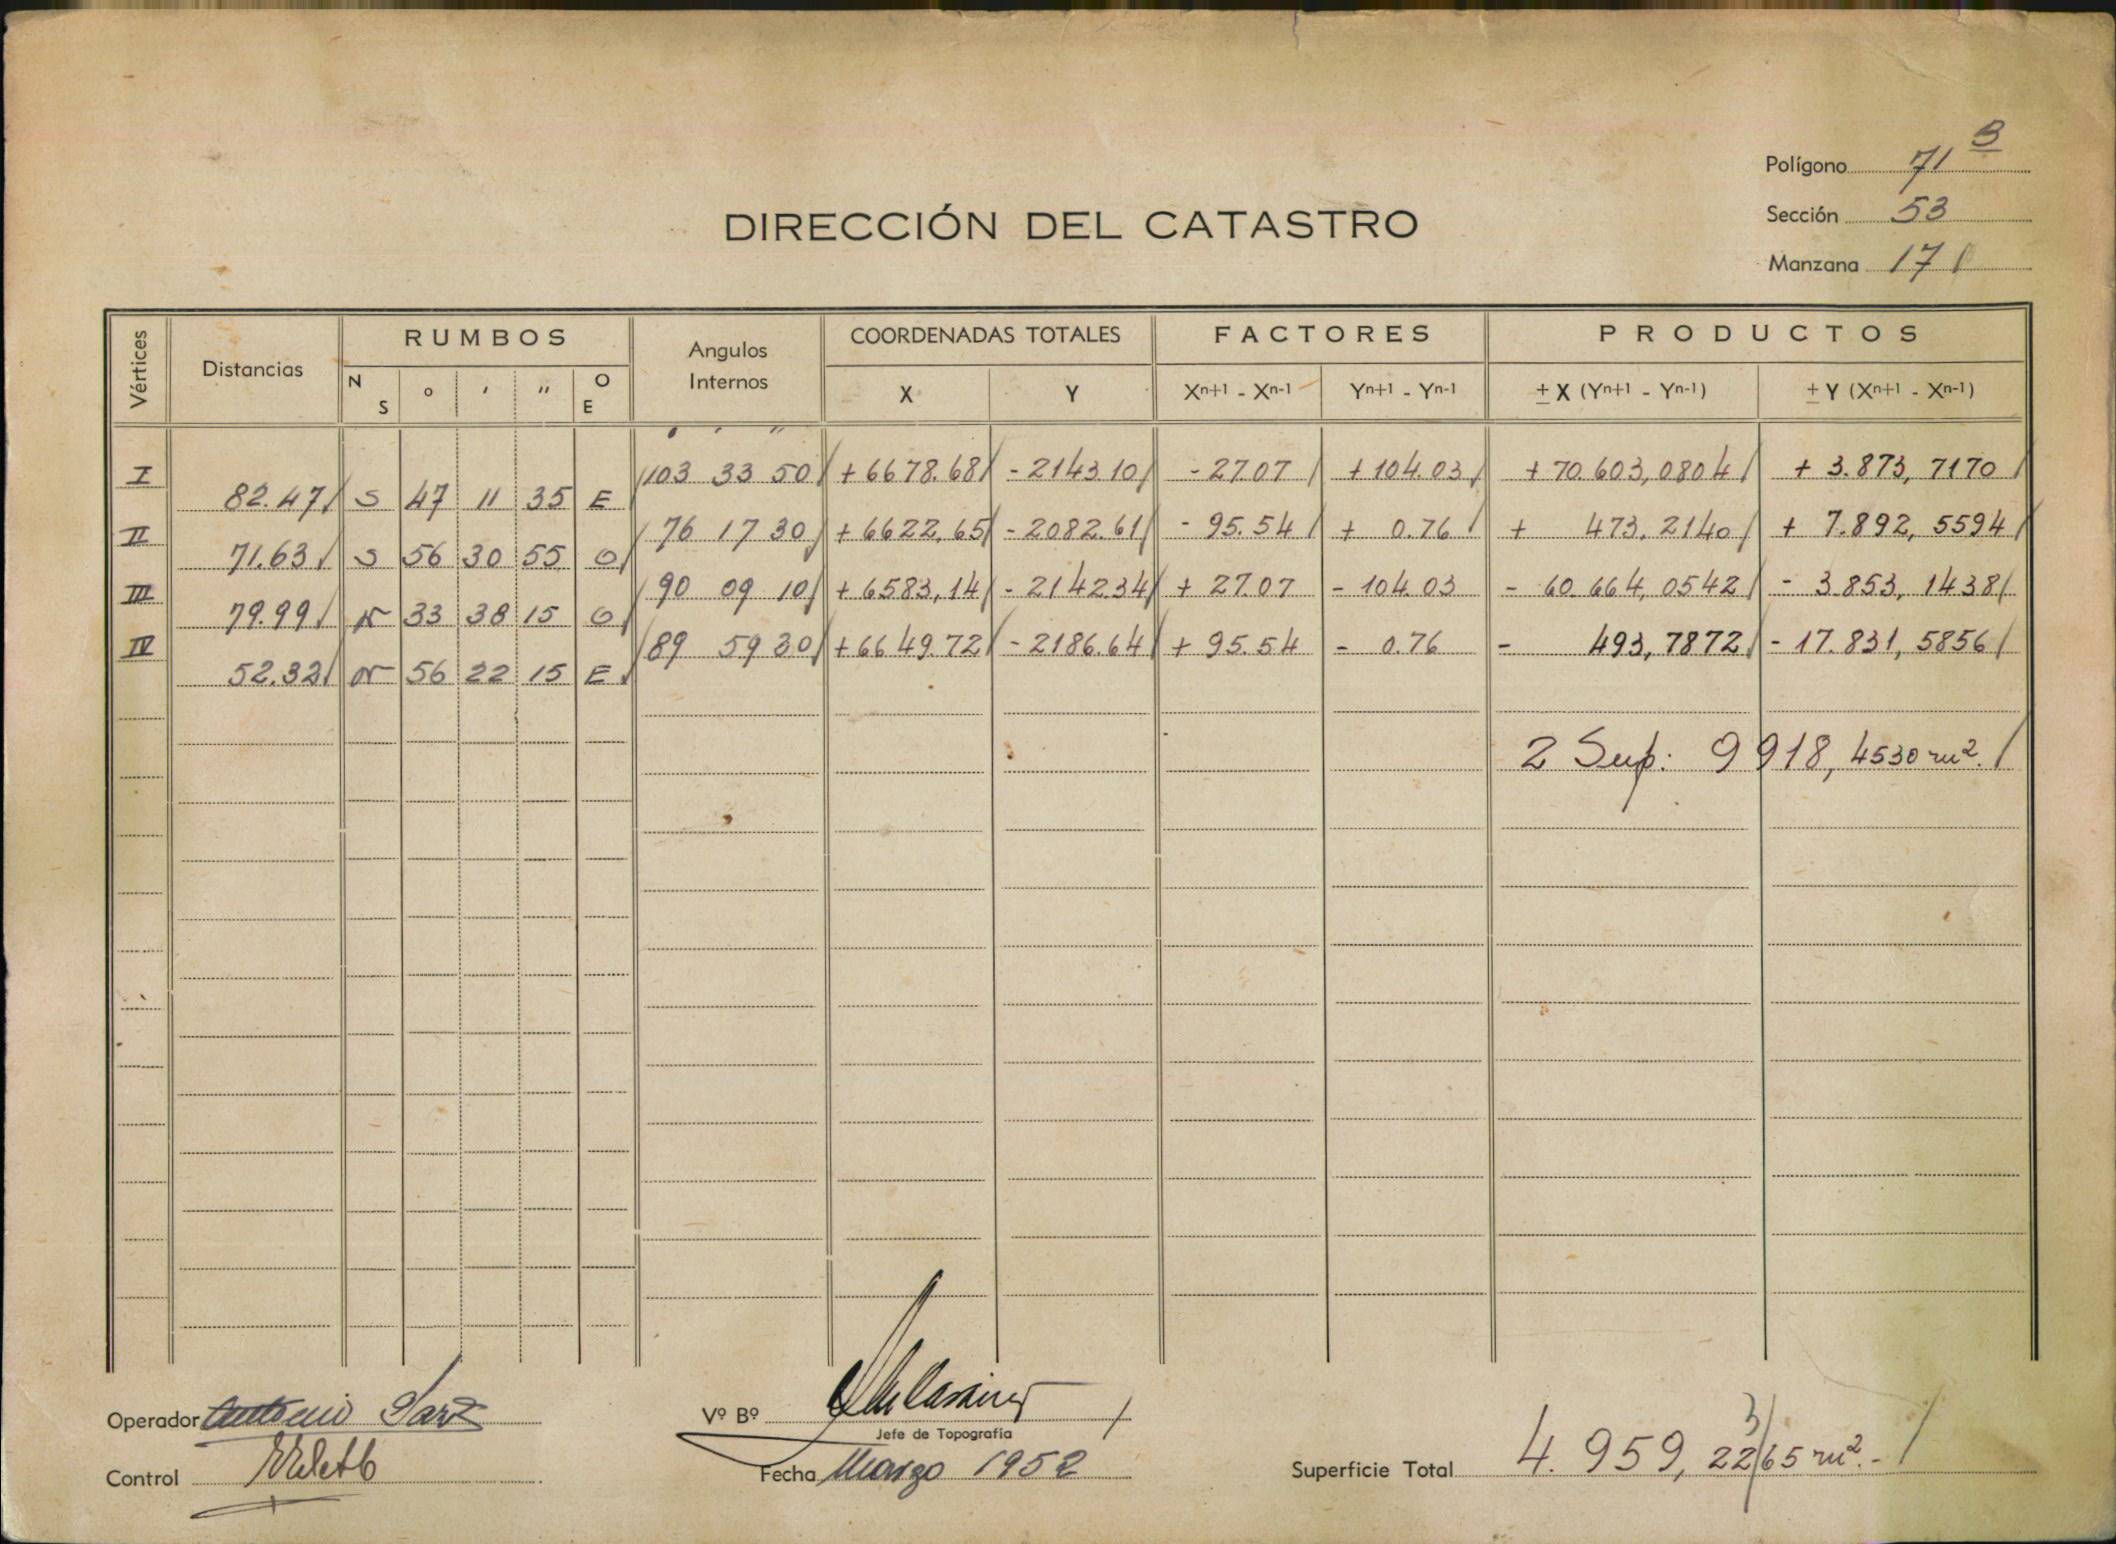 Polígono 71 B
Sección 53
Manzana 17
DIRECCIÓN DEL CATASTRO
Vértices Distancias RUMBOS Angulos Internos COORDENADAS TOTALES FACTORES PRODUCTOS
N S o ′ ″ O E X Y Xn+1 - Xn-1 Yn+1 - Yn-1 ± X (Yn+1 - Yn-1) ± Y (Xn+1 - Xn-1)
′ ′ ″
I 103 33 50 + 6678.68 - 2143.10 - 27.07 + 104.03 + 70.603,0804 + 3.873,7170
82.47 S 47 11 35 E
II 76 17 30 + 6622,65 - 2082.61 - 95.54 + 0.76 + 473.2140 + 7.892,5594
71.63 S 56 30 55 O
III 90 09 10 + 6583,14 - 2142.34 + 27.07 - 104.03 - 60.664,0542 - 3.853,1438
79.99 N 33 38 15 O
IV 89 59 30 + 6649.72 - 2186.64 + 95.54 - 0.76 - 493,7872 - 17.831,5856
52.32 N 56 22 15 E
2 Sup: 9918,4530 m².
Operador Antonio
Vº Bº
Jefe de Topografía
Control
Fecha Marzo 1952
3
Superficie Total 4.959,2265 m².-